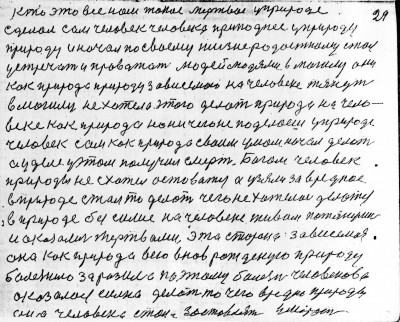 29
кто это все нам такое мертвое у природе
сделал сам человек человека природнее у природу
природу и начал по своему жизнерадостному стал
устречать и провожат людей людями в могилу они
как природа природу зависемой на человеке тянут
в могилу не хотела этого делат природа на чело–
веке как природа но ничего не поделаеш у природе
человек сам как природа своим умом начал делат
а у деле у этом получил смерт. Богом человек
природы не схотел оставатся а узялся за вредное
в природе стал то делат чего не хотелос делату
в природе бессилие на человеке живом потянули
и оказалис жертвами, эта сторона зависемая
она как природа всю внов рожденную природу
болезнию заразила поэтому болезн человекова
оказалас силна делат по чего вредно природы
она человека стала заставлят умират